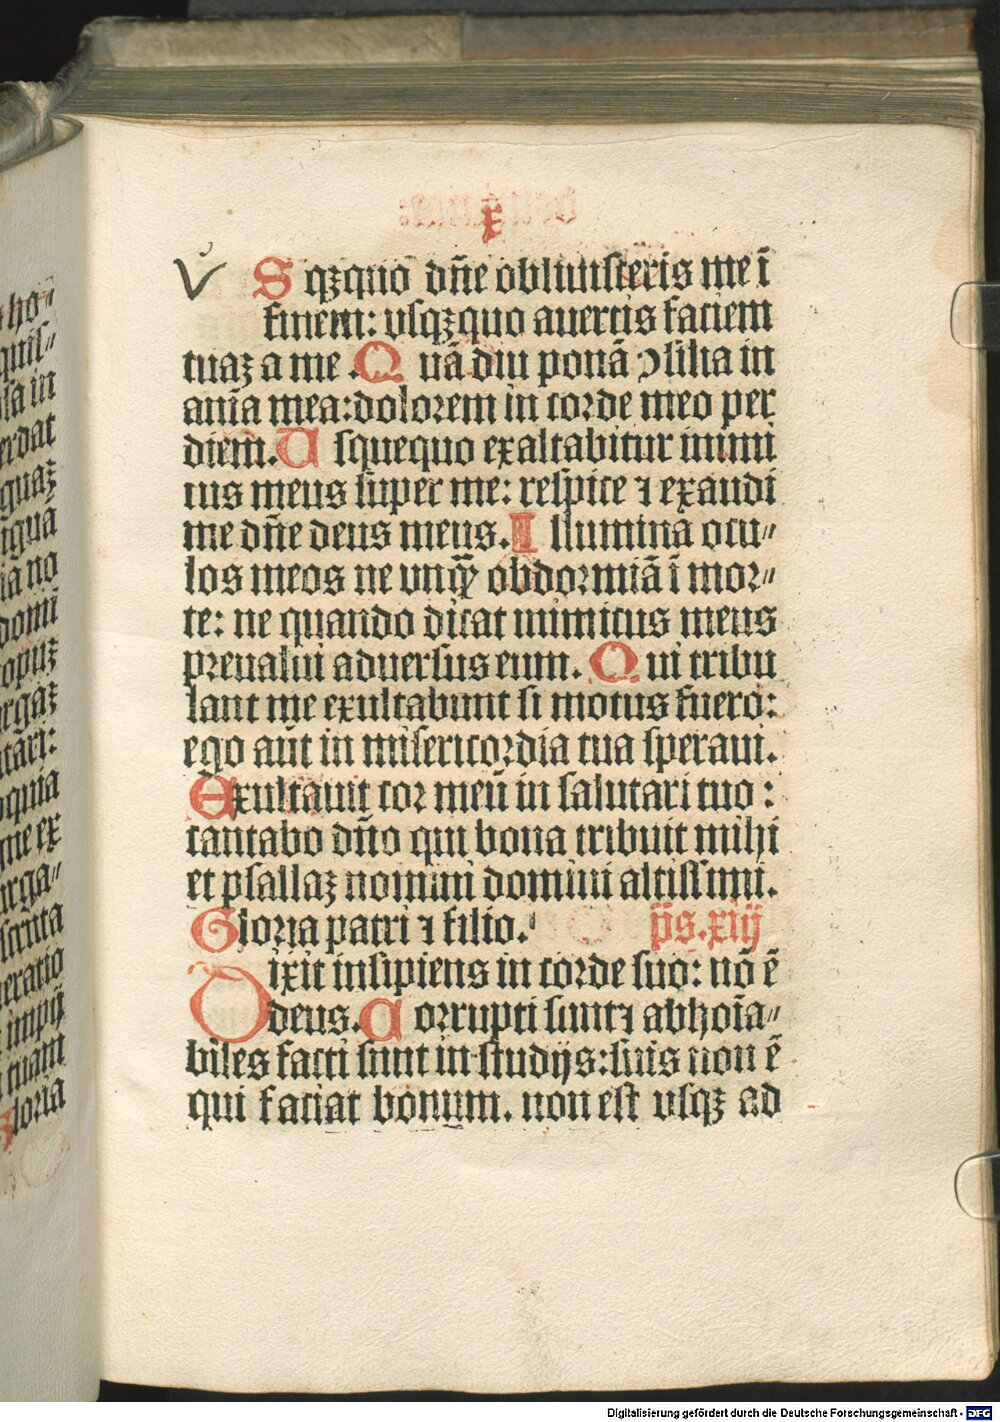 x
V S qꝫquo dn̄e obliuisceris me ī
finem: vsqꝫquo auertis faciem
tuaꝫ a me. Quā diu ponā ↄsilia in
aīa mea: dolorem in corde meo per
diem. Usquequo exaltabitur inimi
cus meus super me: respice ⁊ exaudi
me dn̄e deus meus. Illumina ocu⸗
los meos ne vnqꝫ̄ obdormiā ī mor⸗
te: ne quando dicat inimicus meus
preualui aduersus eum. Qui tribu
lant me exultabunt si motus fuero:
ego aūt in misericordia tua speraui.
Exultauit cor meū in salutari tuo:
cantabo dn̄o qui bona tribuit mihi
et psallaꝫ nomini domini altissimi.
Gloria patri ⁊ filio. p̄s. xiij
Dixit insipiens in corde suo: nō ē
deus. Corrupti sunt⁊ abhoīa⸗
biles facti sunt in studijs: suis non ē
qui faciat bonum. non est vsqꝫ ad
Digitalisierung gefördert durch die Deutsche Forschungsgemeinschaft - DFG